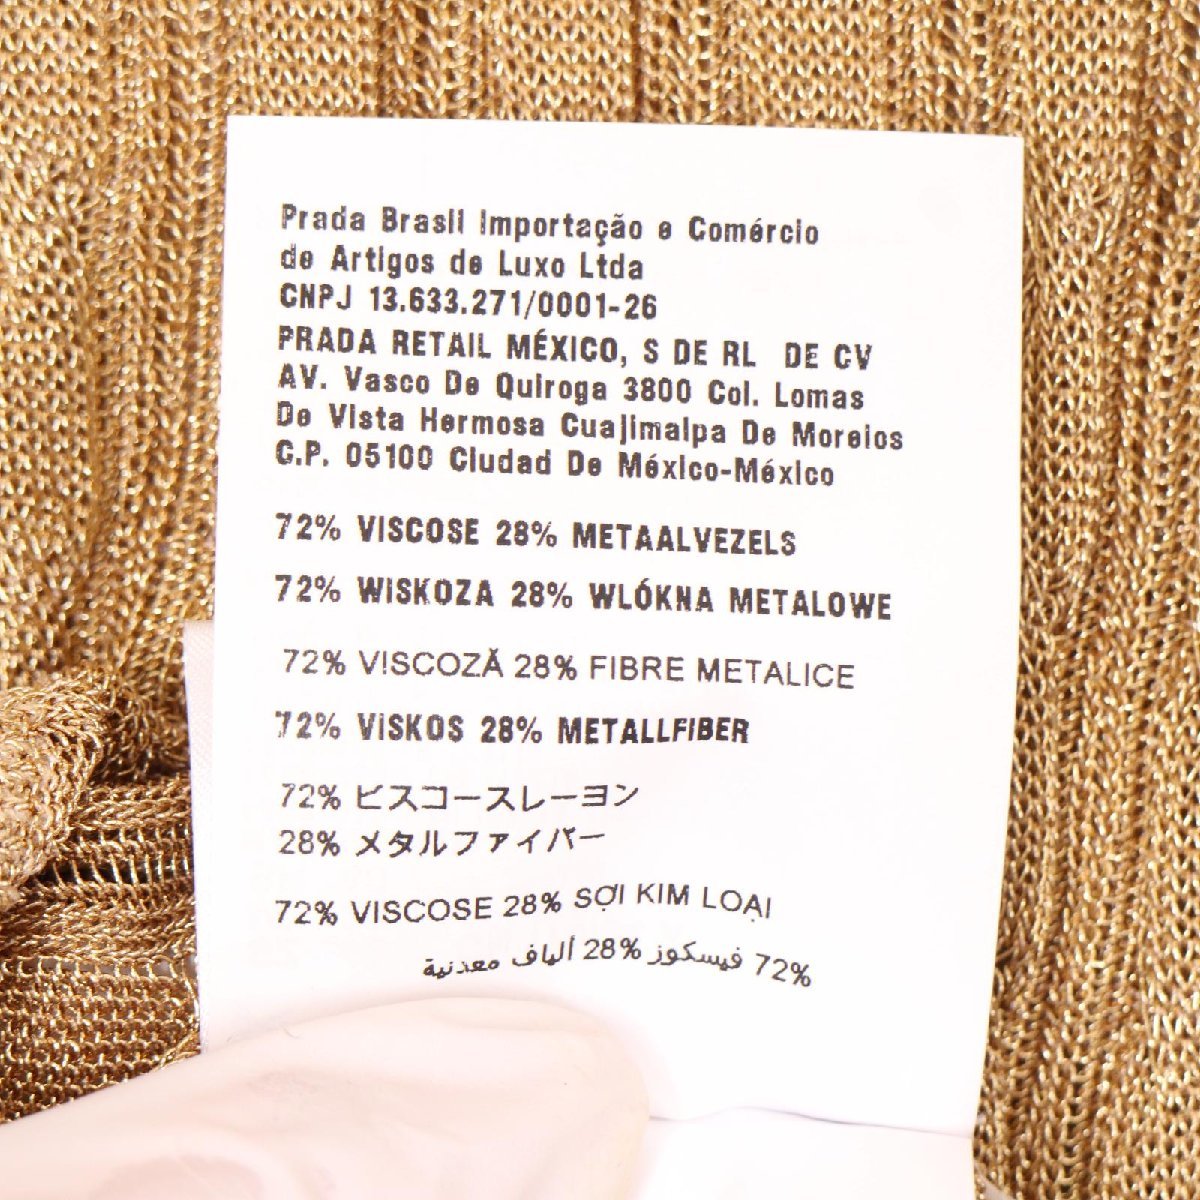 Prada Brasil Importação e Comércio
de Artigos de Luxo Ltda
CNPJ 13.633.271/0001-26
PRADA RETAIL MÉXICO, S DE RL DE CV
AV. Vasco De Quiroga 3800 Col. Lomas
De Vista Hermosa Cuajimalpa De Morelos
C.P. 05100 Ciudad De México-México
72% VISCOSE 28% METAALVEZELS
72% WISKOZA 28% WLÓKNA METALOWE
72% VISCOZĂ 28% FIBRE METALICE
72% VISKOS 28% METALLFIBER
72% ビスコースレーヨン
28% メタルファイバー
72% VISCOSE 28% SỢI KIM LOẠI
72% فيسكوز 28% ألياف معدنية